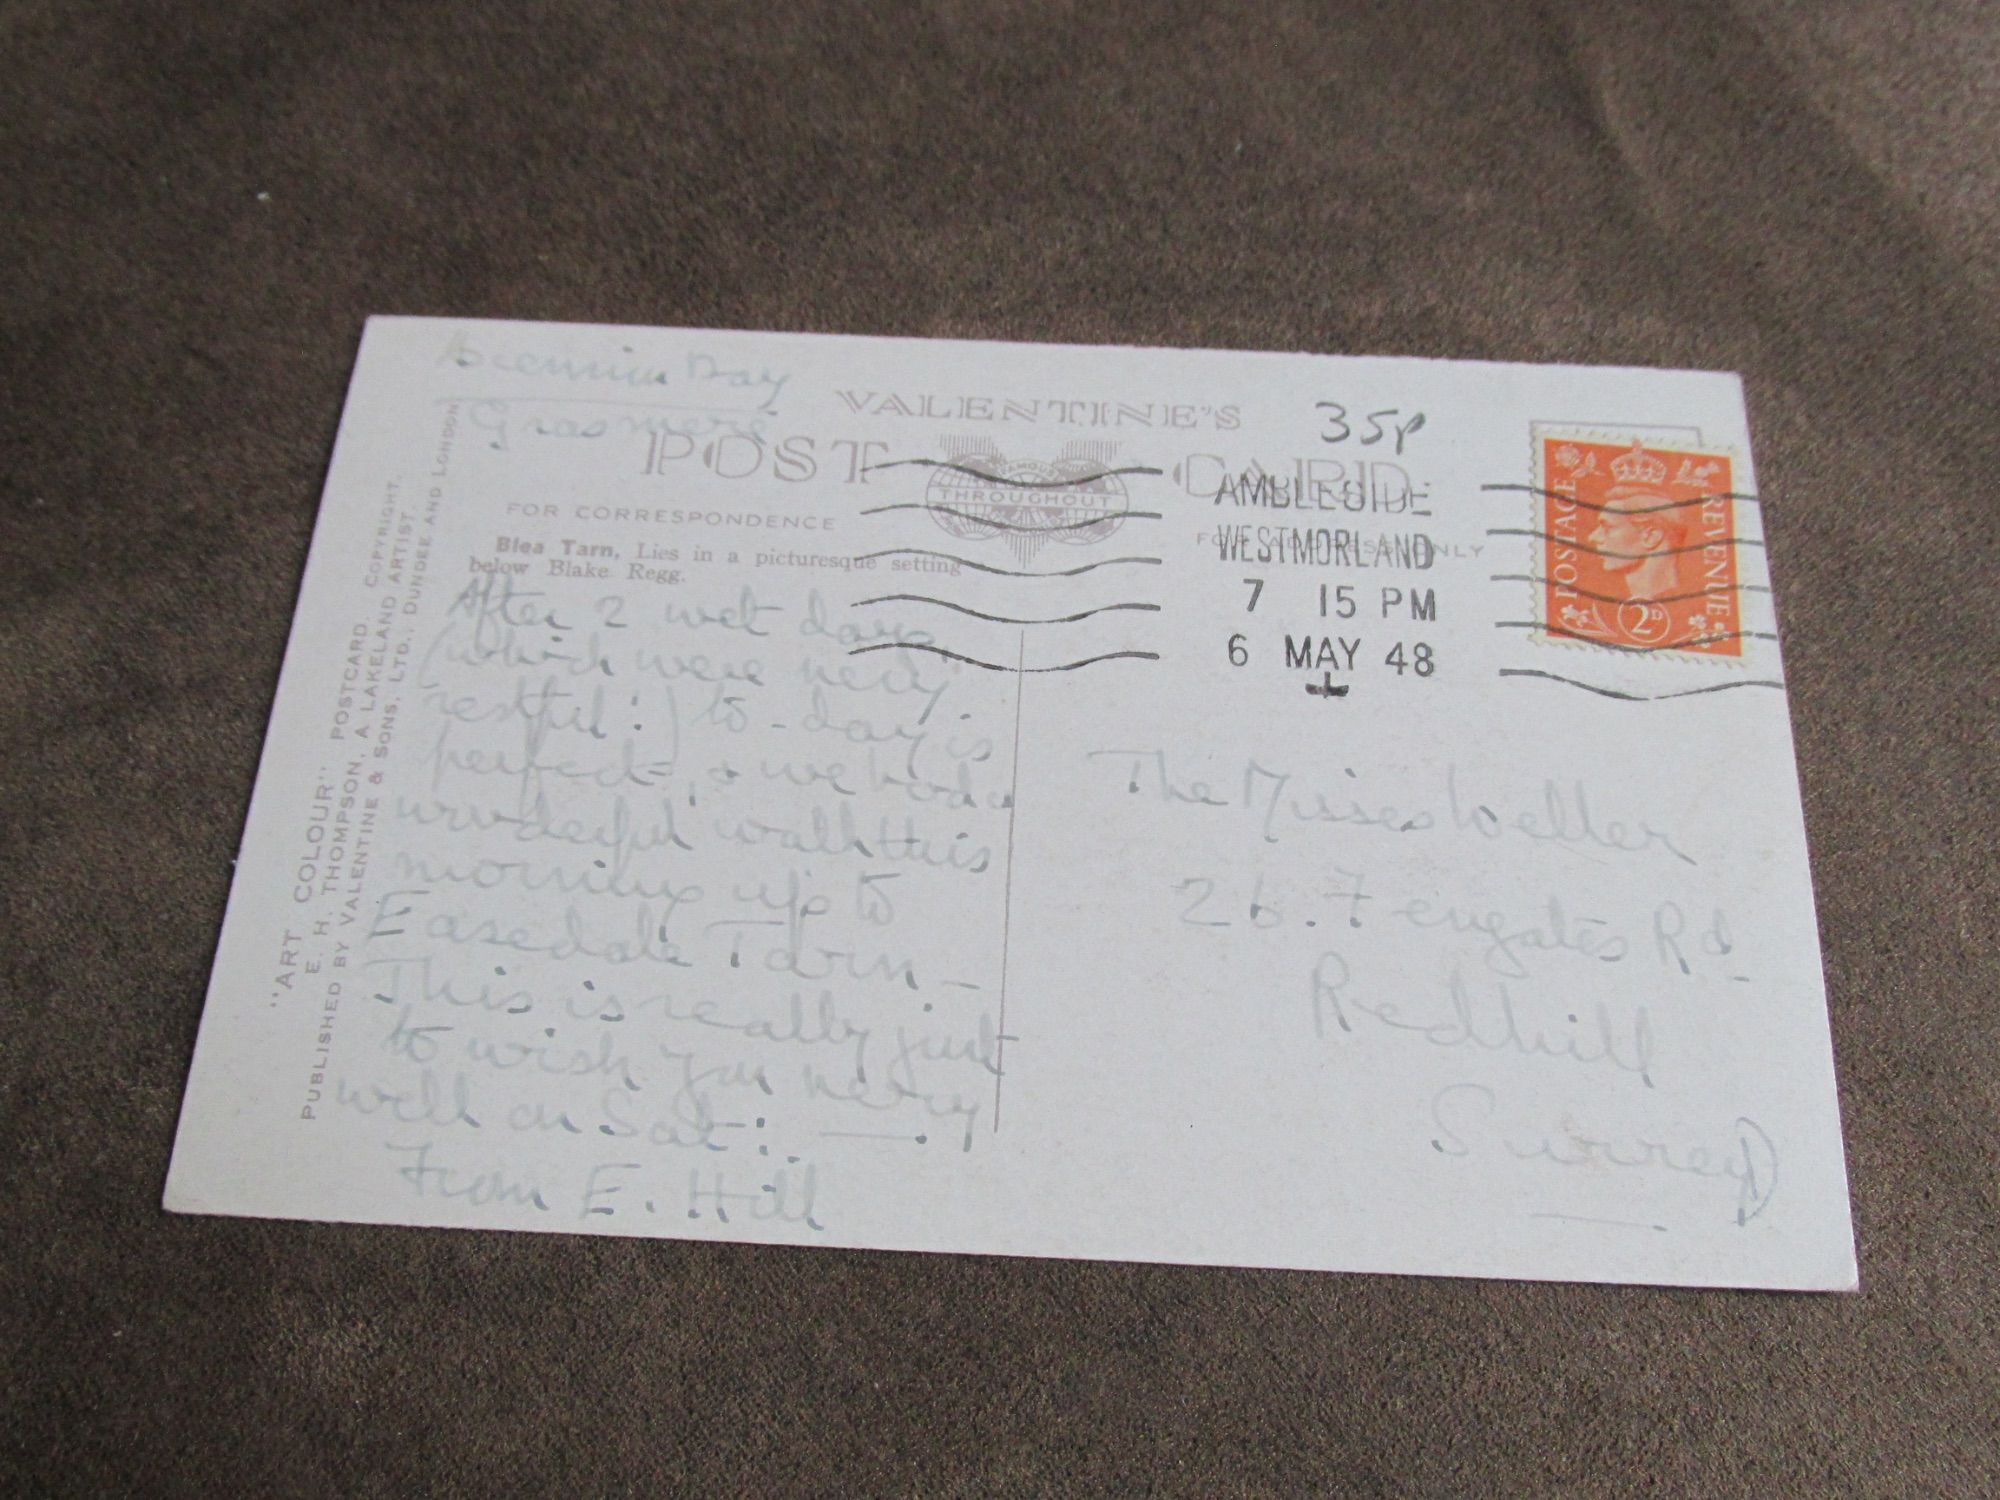 Ascension Day
Grasmere
VALENTINE'S
POST CARD
FAMOUS
THROUGHOUT
FOR CORRESPONDENCE
FOR ADDRESS ONLY
Blea Tarn. Lies in a picturesque setting
below Blake Regg.
After 2 wet days
(which were very
restful!) to-day is
perfect, & we had a
wonderful walk this
morning up to
Easedale Tarn –
This is really just
to wish you very
well on Sat: –.
From E. Hill
"ART COLOUR" POSTCARD. COPYRIGHT.
E. H. THOMPSON, A LAKELAND ARTIST.
PUBLISHED BY VALENTINE & SONS, LTD., DUNDEE AND LONDON
35p
AMBLESIDE
WESTMORLAND
7 15 PM
6 MAY 48
POSTAGE
REVENUE
2D
The Misses Weller
26. Fengates Rd
Redhill
Surrey